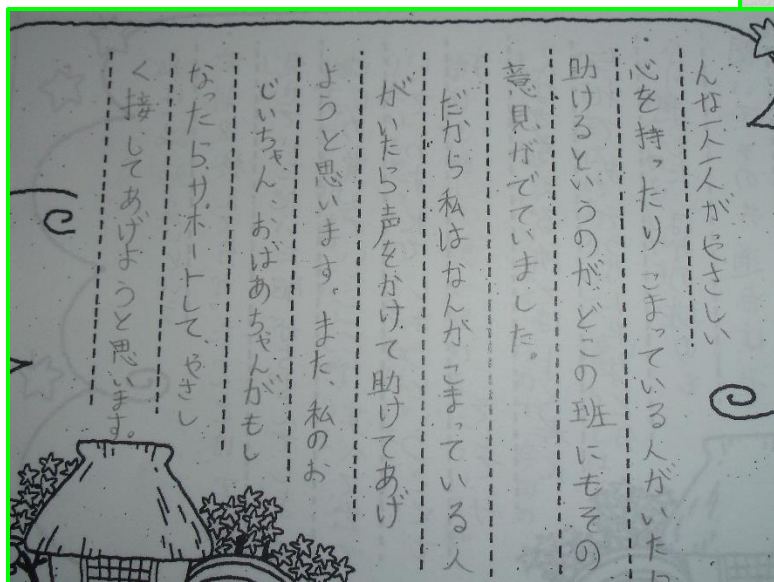 んな一人一人がやさしい
心を持ったり、こまっている人がいたら
助けるというのが、どこの班にもその
意見がでていました。
だから私はなんが、こまっている人
がいたら声をかけて助けてあげ
ようと思います。また、私のお
じいちゃん、おばあちゃんがもし
なったらサポートして、やさし
く接してあげようと思います。